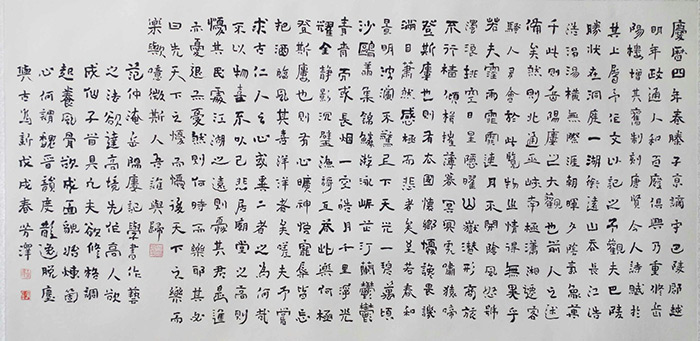 慶曆四年春滕子京謫守巴陵郡越
明年政通人和百廢俱興乃重修岳
陽樓增其舊制刻唐賢今人詩賦於
其上屬予作文以記之予觀夫巴陵
勝狀在洞庭一湖銜遠山吞長江浩
浩湯湯橫無際涯朝暉夕陰氣象萬
千此則岳陽樓之大觀也前人之述
備矣然則北通巫峽南極瀟湘遷客
騷人多會於此覽物之情得無異乎
若夫霪雨霏霏連月不開陰風怒號
濁浪排空日星隱曜山岳潛形商旅
不行檣傾楫摧薄暮冥冥虎嘯猿啼
登斯樓也則有去國懷鄉憂讒畏譏
滿目蕭然感極而悲者矣至若春和
景明波瀾不驚上下天光一碧萬頃
沙鷗翔集錦鱗游泳岸芷汀蘭鬱鬱
青青而或長煙一空皓月千里浮光
耀金靜影沉璧漁歌互答此樂何極
登斯樓也則有心曠神怡寵辱皆忘
把酒臨風其喜洋洋者矣嗟夫予嘗
求古仁人之心或異二者之為何哉
不以物喜不以己悲居廟堂之高則
憂其民處江湖之遠則憂其君是進
亦憂退亦憂然則何時而樂耶其必
曰先天下之憂而憂後天下之樂而
樂歟噫微斯人吾誰與歸
范仲淹岳陽樓記學書作藝
之法欲達高境先高人欲
成仙子首具九夫欲修格調
養風骨欲成面貌煉
心何謂魏晉韻度散逸脫塵
古為新戊戌春若澤